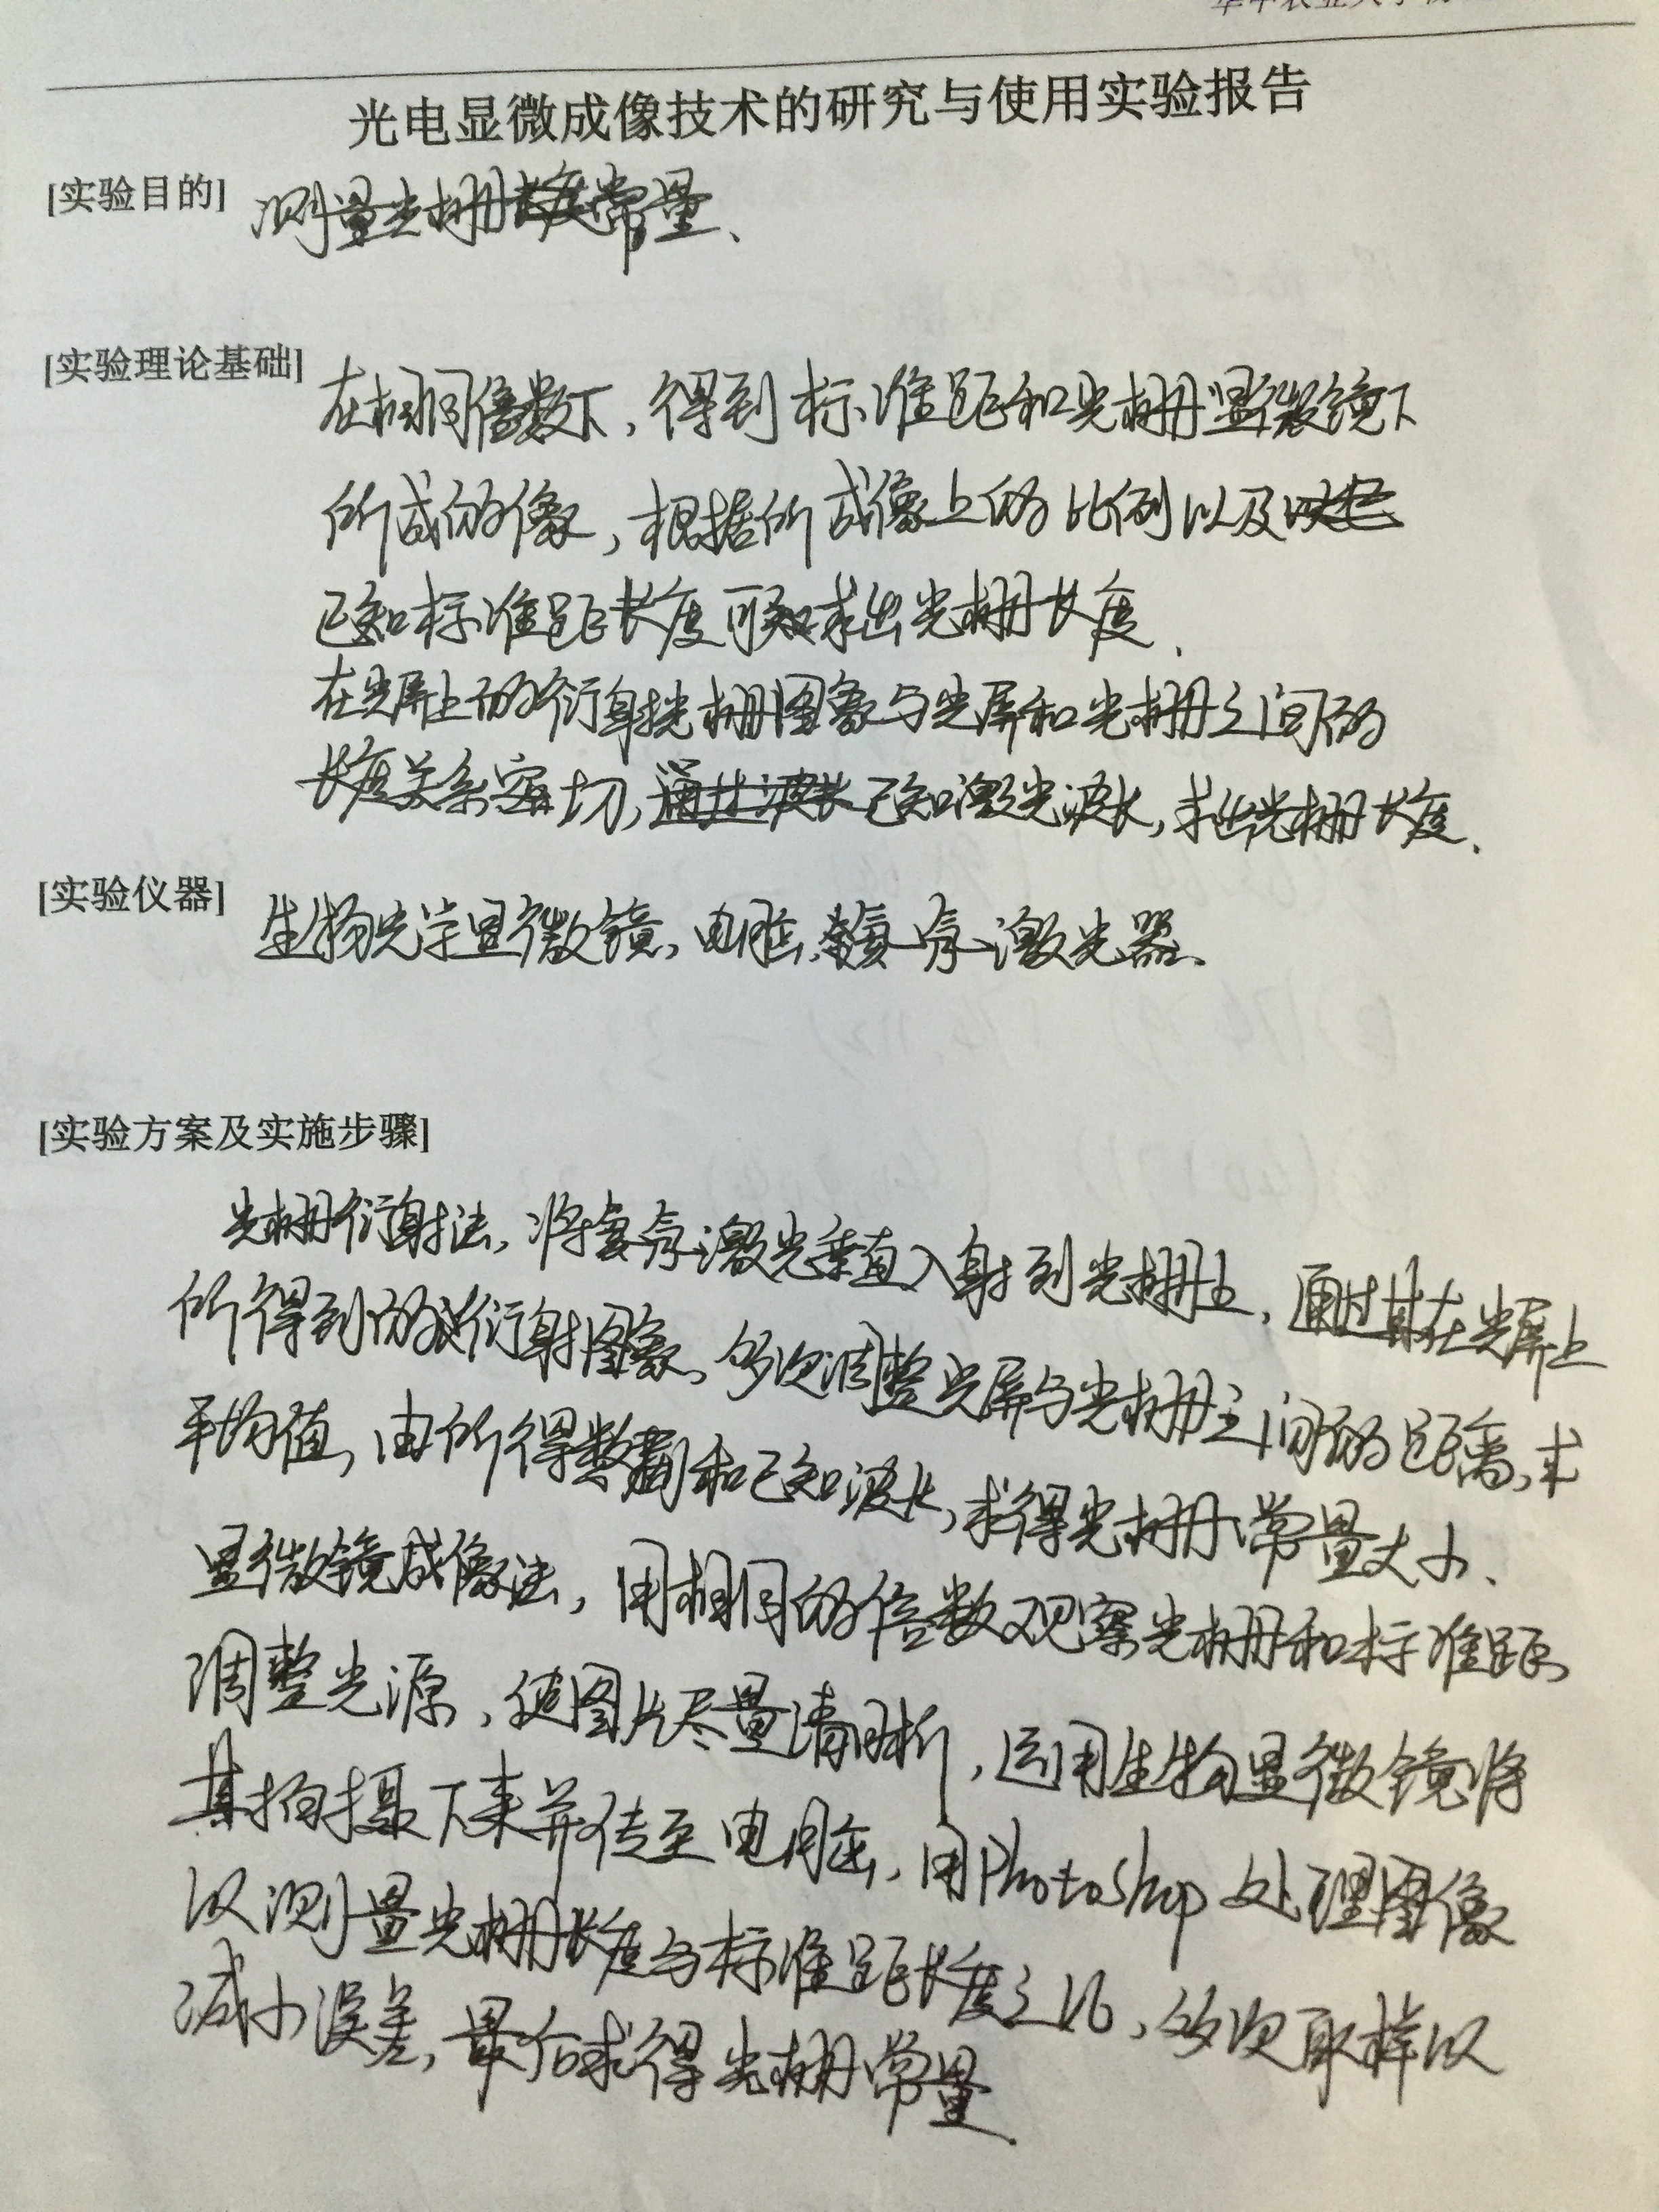 华中农业大学物
光电显微成像技术的研究与使用实验报告
[实验目的] 测量光栅常量、
[实验理论基础] 在相同倍数下，得到标准距和光栅显微镜下
所成的像，根据所成像上的比例以及
已知标准距长度可求出光栅长度、
在光屏上的衍射光栅图象与光屏和光栅之间的
长度关系密切，已知激光波长，求出光栅长度、
[实验仪器] 生物光学显微镜、电脑、氦氖激光器、
[实验方案及实施步骤]
光栅衍射法，将氦氖激光垂直入射到光栅上，通过其在光屏上
所得到的衍射图象，多次调整光屏与光栅之间的距离，求
平均值，由所得数据和已知波长，求得光栅常量大小、
显微镜成像法，用相同的倍数观察光栅和标准距，
调整光源，使图片尽量清晰，运用生物显微镜将
其拍摄下来并传至电脑，用Photoshop处理图像
以测量光栅长度与标准距长度之比，多次取样以
减小误差，最后求得光栅常量.